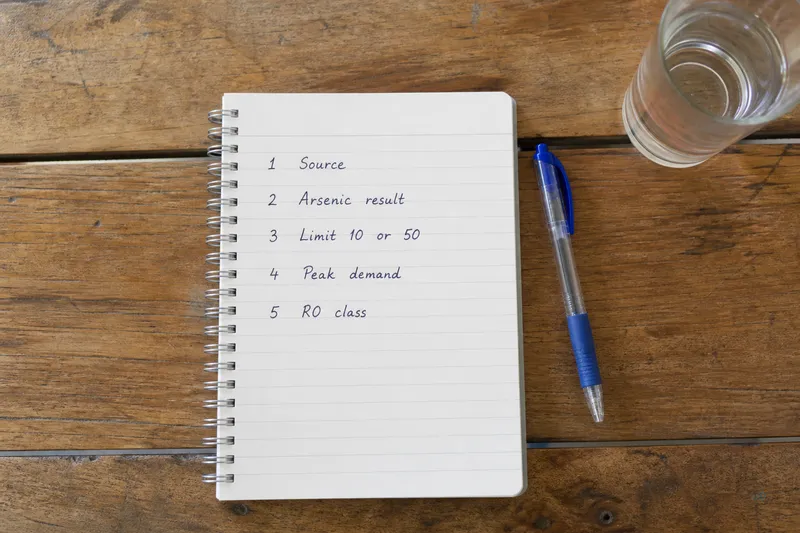 1 Source
2 Arsenic result
3 Limit 10 or 50
4 Peak demand
5 RO class